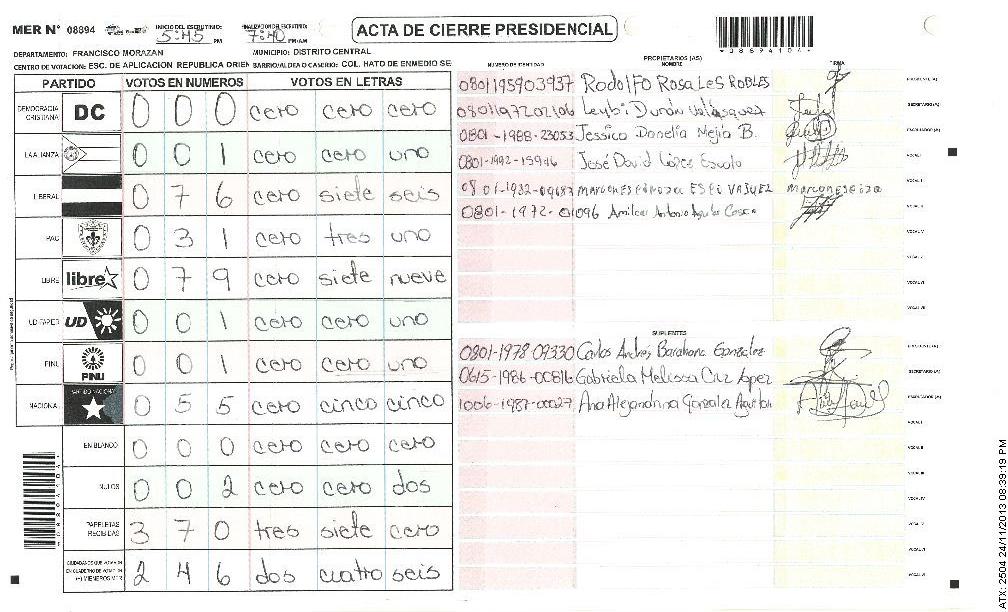 MER N° 08894 INICIO DEL ESCRUTINIO: 5:45 PM FINALIZACION DEL ESCRUTINIO: 7:40 PM/AM ACTA DE CIERRE PRESIDENCIAL
DEPARTAMENTO: FRANCISCO MORAZAN MUNICIPIO: DISTRITO CENTRAL
CENTRO DE VOTACION: ESC. DE APLICACION REPUBLICA ORIEN BARRIO/ALDEA O CASERIO: COL. HATO DE ENMEDIO SE
PARTIDO VOTOS EN NUMEROS VOTOS EN LETRAS
DEMOCRACIA CRISTIANA DC 0 0 0 cero cero cero
LA ALIANZA 0 0 1 cero cero uno
LIBERAL 0 7 6 cero siete seis
PAC 0 3 1 cero tres uno
LIBRE libre 0 7 9 cero siete nueve
UD-FAPER UD 0 0 1 cero cero uno
PINU PINU 0 0 1 cero cero uno
NACIONAL PARTIDO NACIONAL 0 5 5 cero cinco cinco
EN BLANCO 0 0 0 cero cero cero
NULOS 0 0 2 cero cero dos
PAPELETAS RECIBIDAS 3 7 0 tres siete cero
CIUDADANOS QUE VOTARON EN CUADERNO DE VOTACION (+) MIEMBROS MER 2 4 6 dos cuatro seis
PROPIETARIOS (AS)
NUMERO DE IDENTIDAD NOMBRE FIRMA
0801195903937 Rodolfo Rosales Robles PRESIDENTE(A)
0801197202106 Durón Valásquez SECRETARIO(A)
0801-1988-23053 Jessica Donelia Mejia B. ESCRUTADOR(A)
0801-1992-15946 José David López VOCAL I
VOCAL II
0801-1972-01096 Amilcar Antonio Aguilar VOCAL III
VOCAL IV
VOCAL V
VOCAL VI
VOCAL VII
SUPLENTES
0801-1978 09330 Carlos Andrés Barahona Gonzalez PRESIDENTE(A)
0615-1986-00816 Gabriela Melissa Cruz Lopez SECRETARIO(A)
1006-1987-00027 Ana Alejandrina Gonzalez Aguilar ESCRUTADOR(A)
VOCAL I
VOCAL II
VOCAL III
VOCAL IV
VOCAL V
VOCAL VI
ATX: 2504 24/11/2013 08:39:19 PM